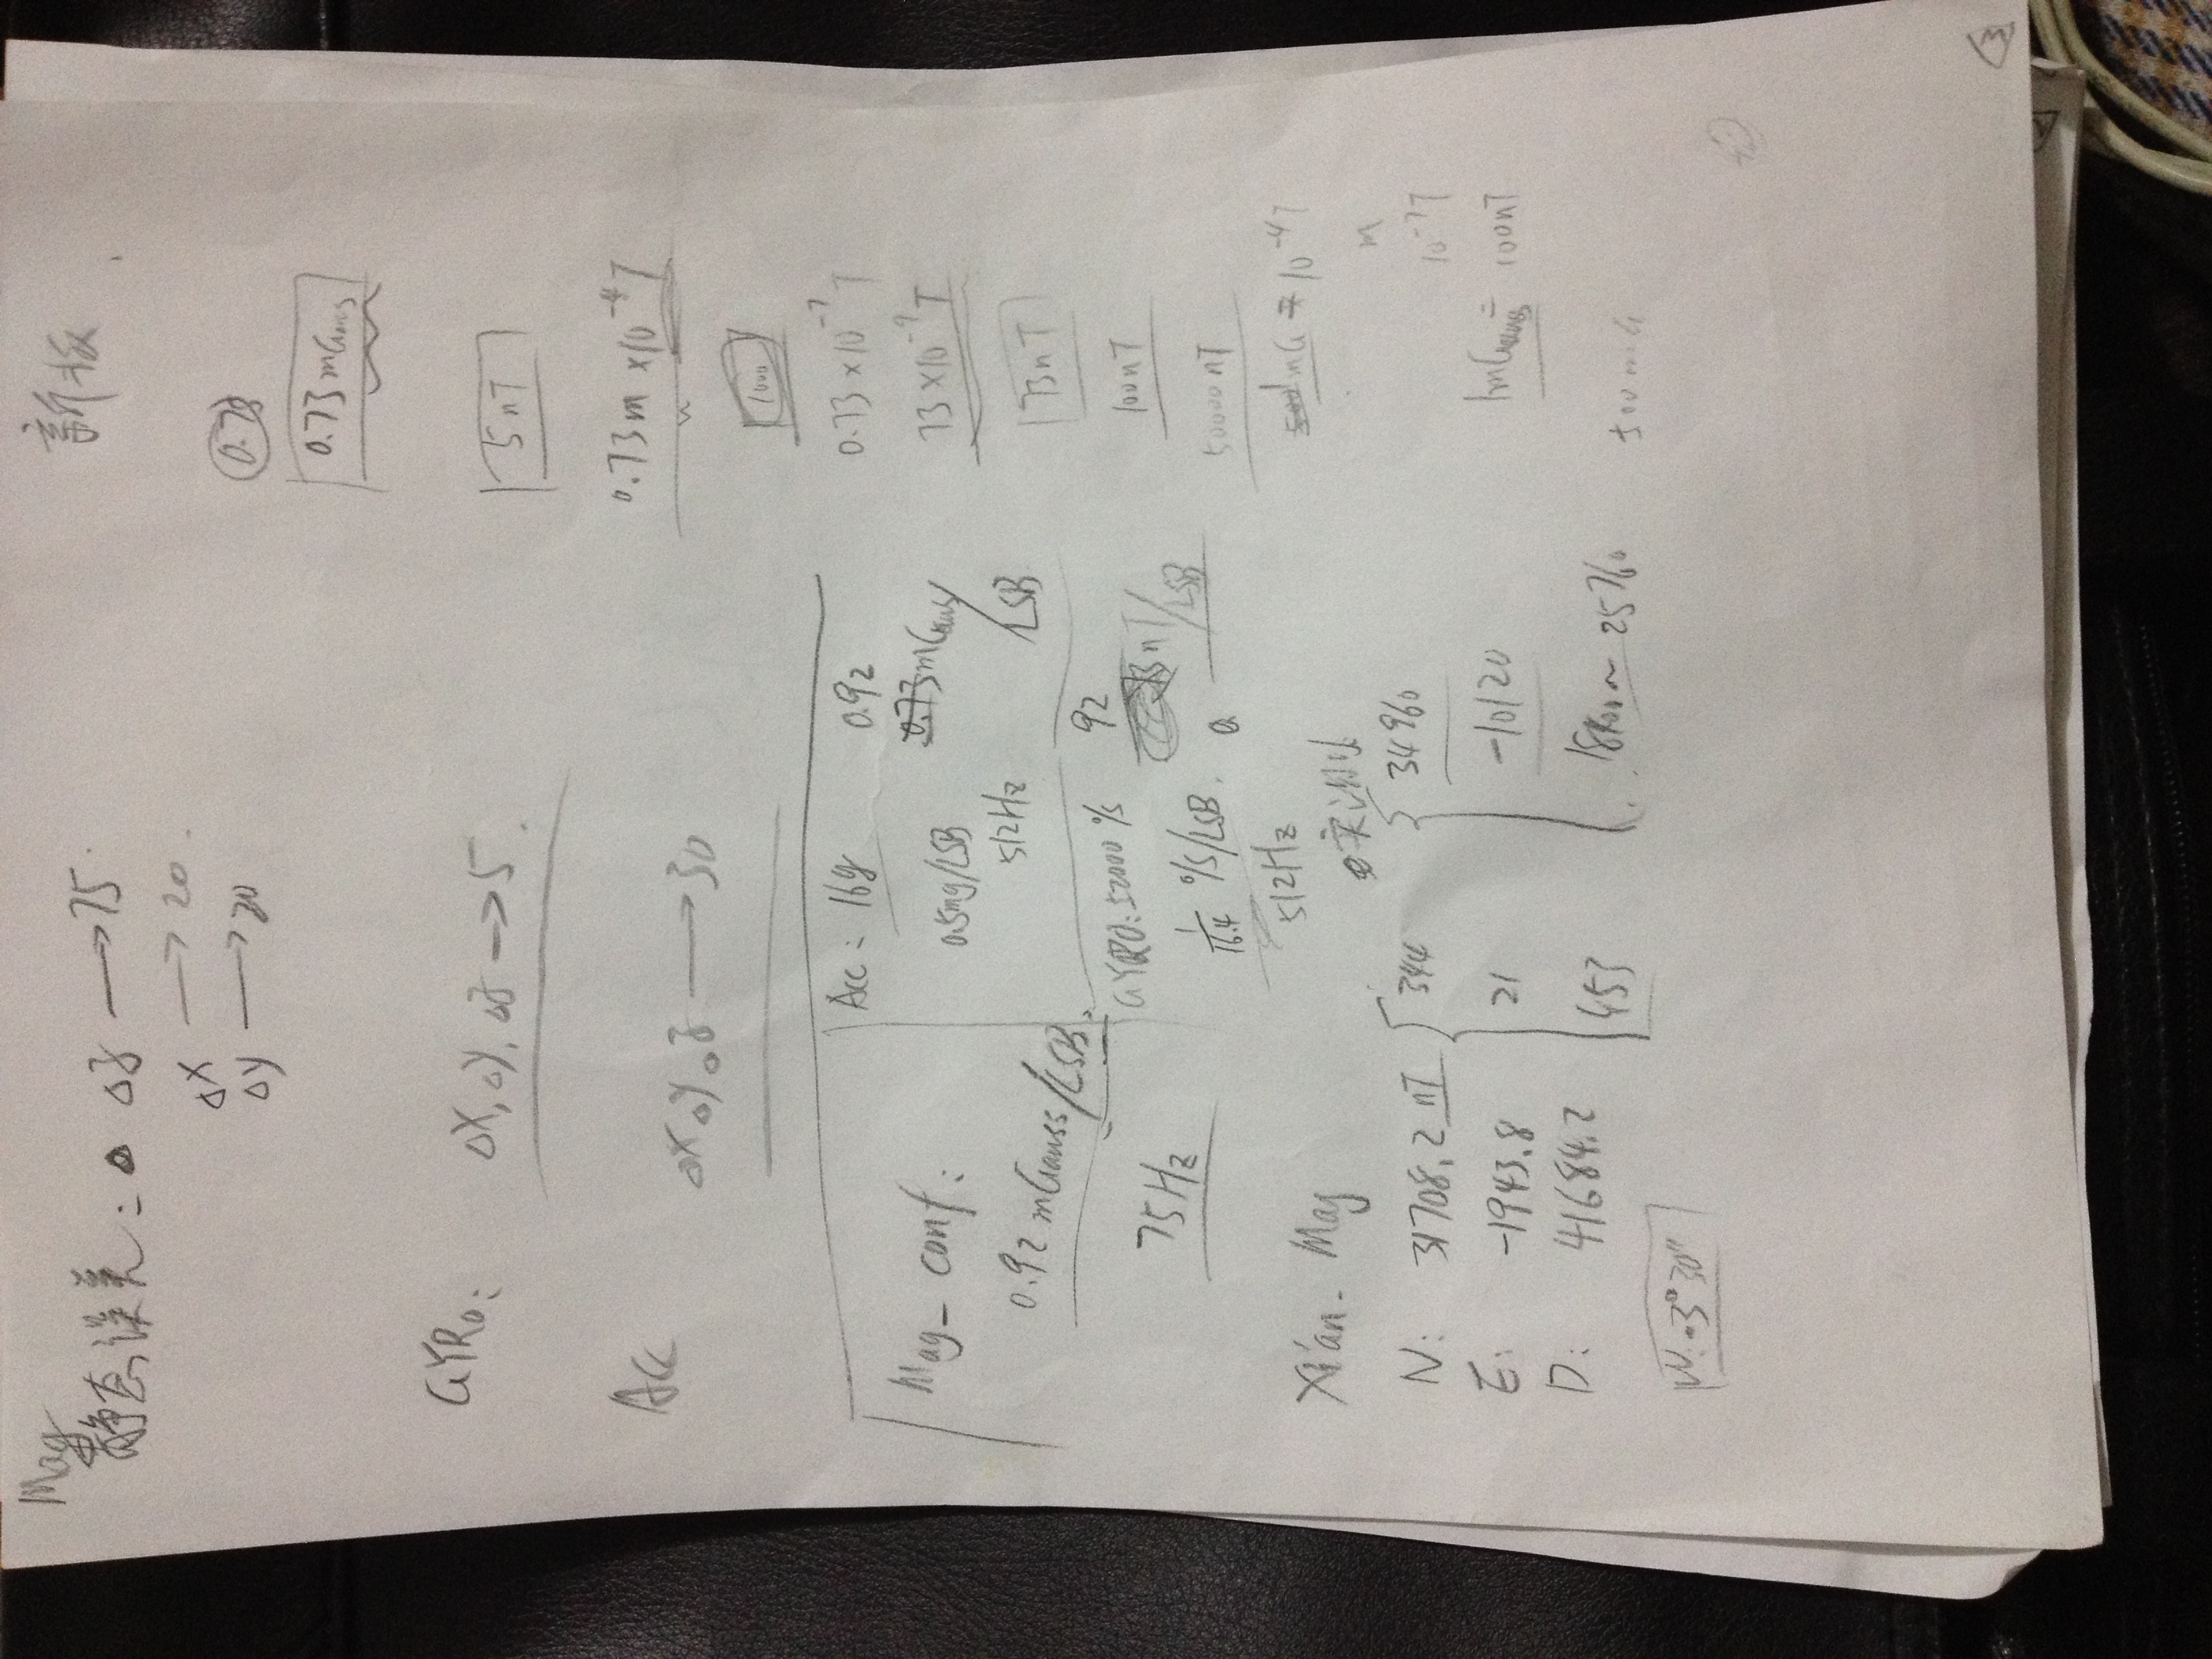 Mag
静态误差: Δz → 75.
ΔX → 20.
ΔY → 30
GYRO:
ΔX, ΔY, Δz → 5.
Acc
ΔX ΔY Δz → 30
Mag_ conf:
0.92 mGauss/LSB.
75Hz
Acc: 16g
0.5mg/LSB
512Hz
0.92
0.73mGauss/LSB
GYRO: ±2000 °/s
1/16.4 °/S/LSB.
512Hz
92
nT/LSB
Xi'an- Mag
实测
N: 31708.2 nT 344 34960
E: -1943.8 21 -10120
D: 41684.2 453 18400~25760
-3°30"
新板
0.73
0.73 mGauss
5nT
0.73m ×10⁻⁴T
1000
0.73×10⁻⁷T
73×10⁻⁹T
73nT
100nT
50000nT
mG 10⁻⁴T
m
10⁻⁷T
1mGauss = 100nT
500mG